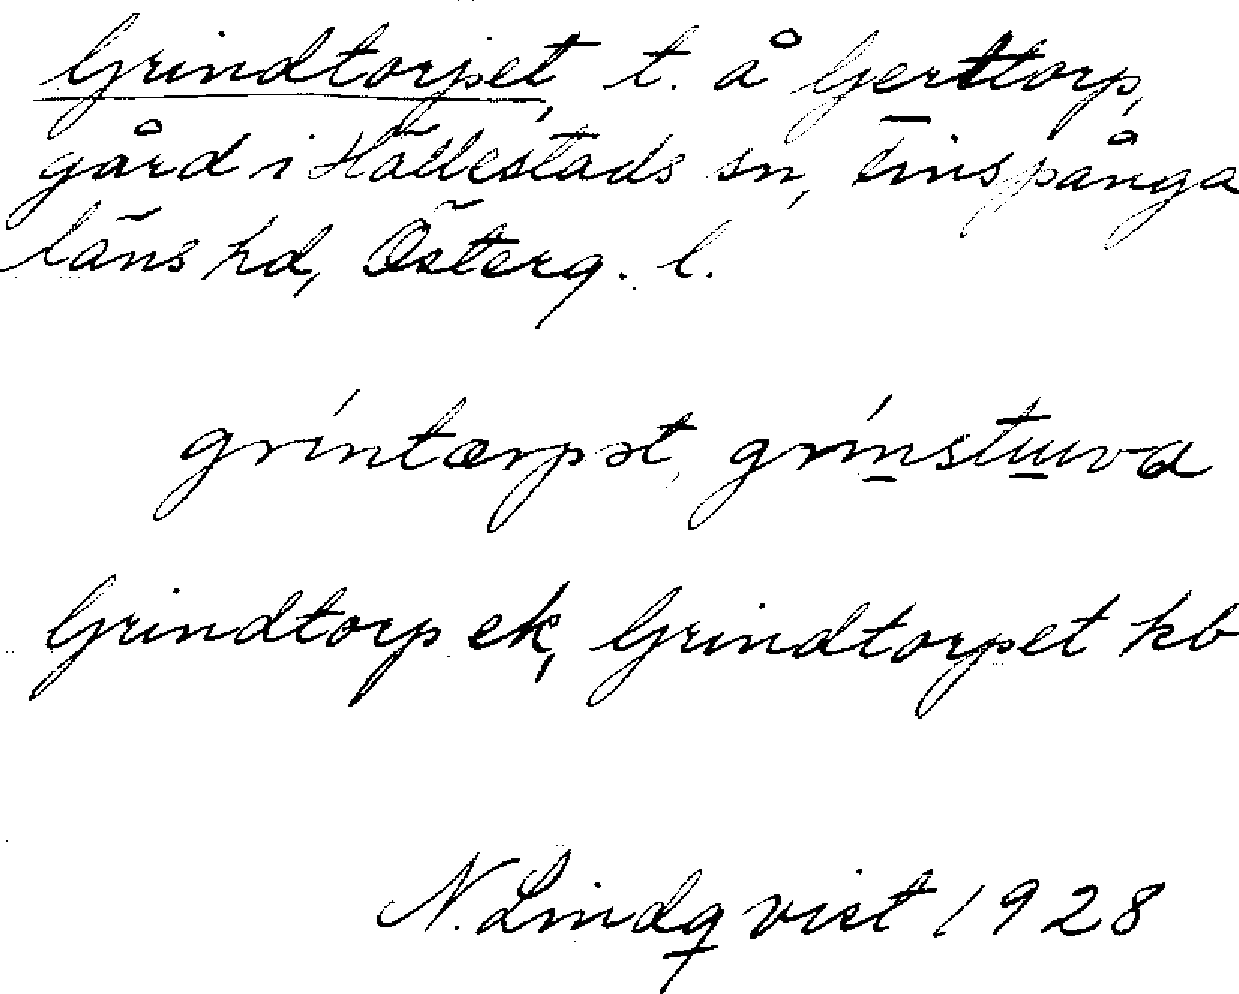 Grindtorpet, t. å Gerttorp,
gård i Hällestads sn, Finspånga
läns hd, Österg. l.
gríntærpət, grínstuuva
Grindtorp ek, Grindtorpet kb
N. Lindqvist 1928